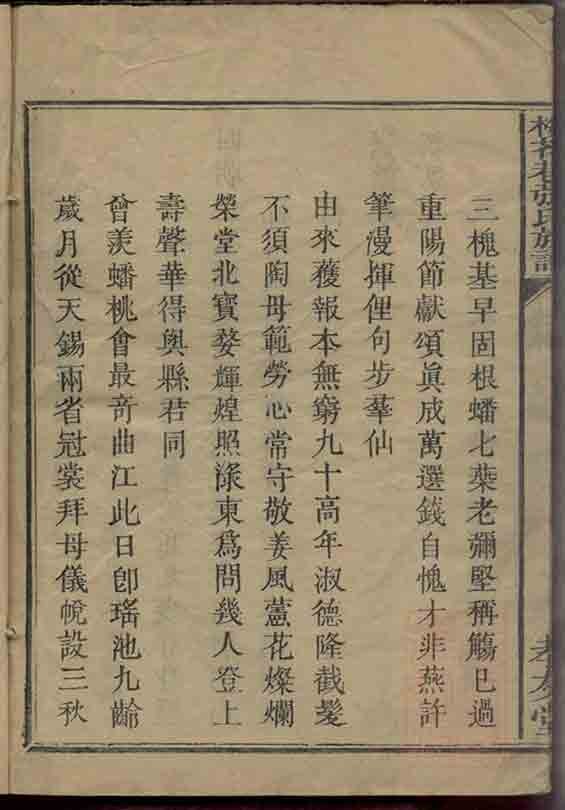 三槐基早固根蟠七葉老彌堅稱觴已過
重陽節獻頌眞成萬選錢自愧才非燕許
筆漫揮俚句步羣仙
由來獲報本無窮九十高年淑德隆截髮
不須陶母範勞心常守敬姜風蘐花燦爛
榮堂北寶婺輝煌照淥東爲問幾人登上
壽聲華得與縣君同
曾羨蟠桃會最奇曲江此日卽瑤池九齡
歲月從天錫兩省冠裳拜母儀帨設三秋
張氏族譜
孝友堂